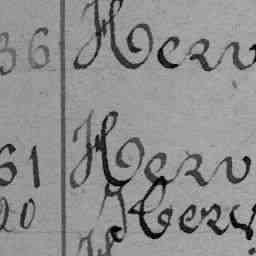 36 Herv
61 Herv
20 Herv